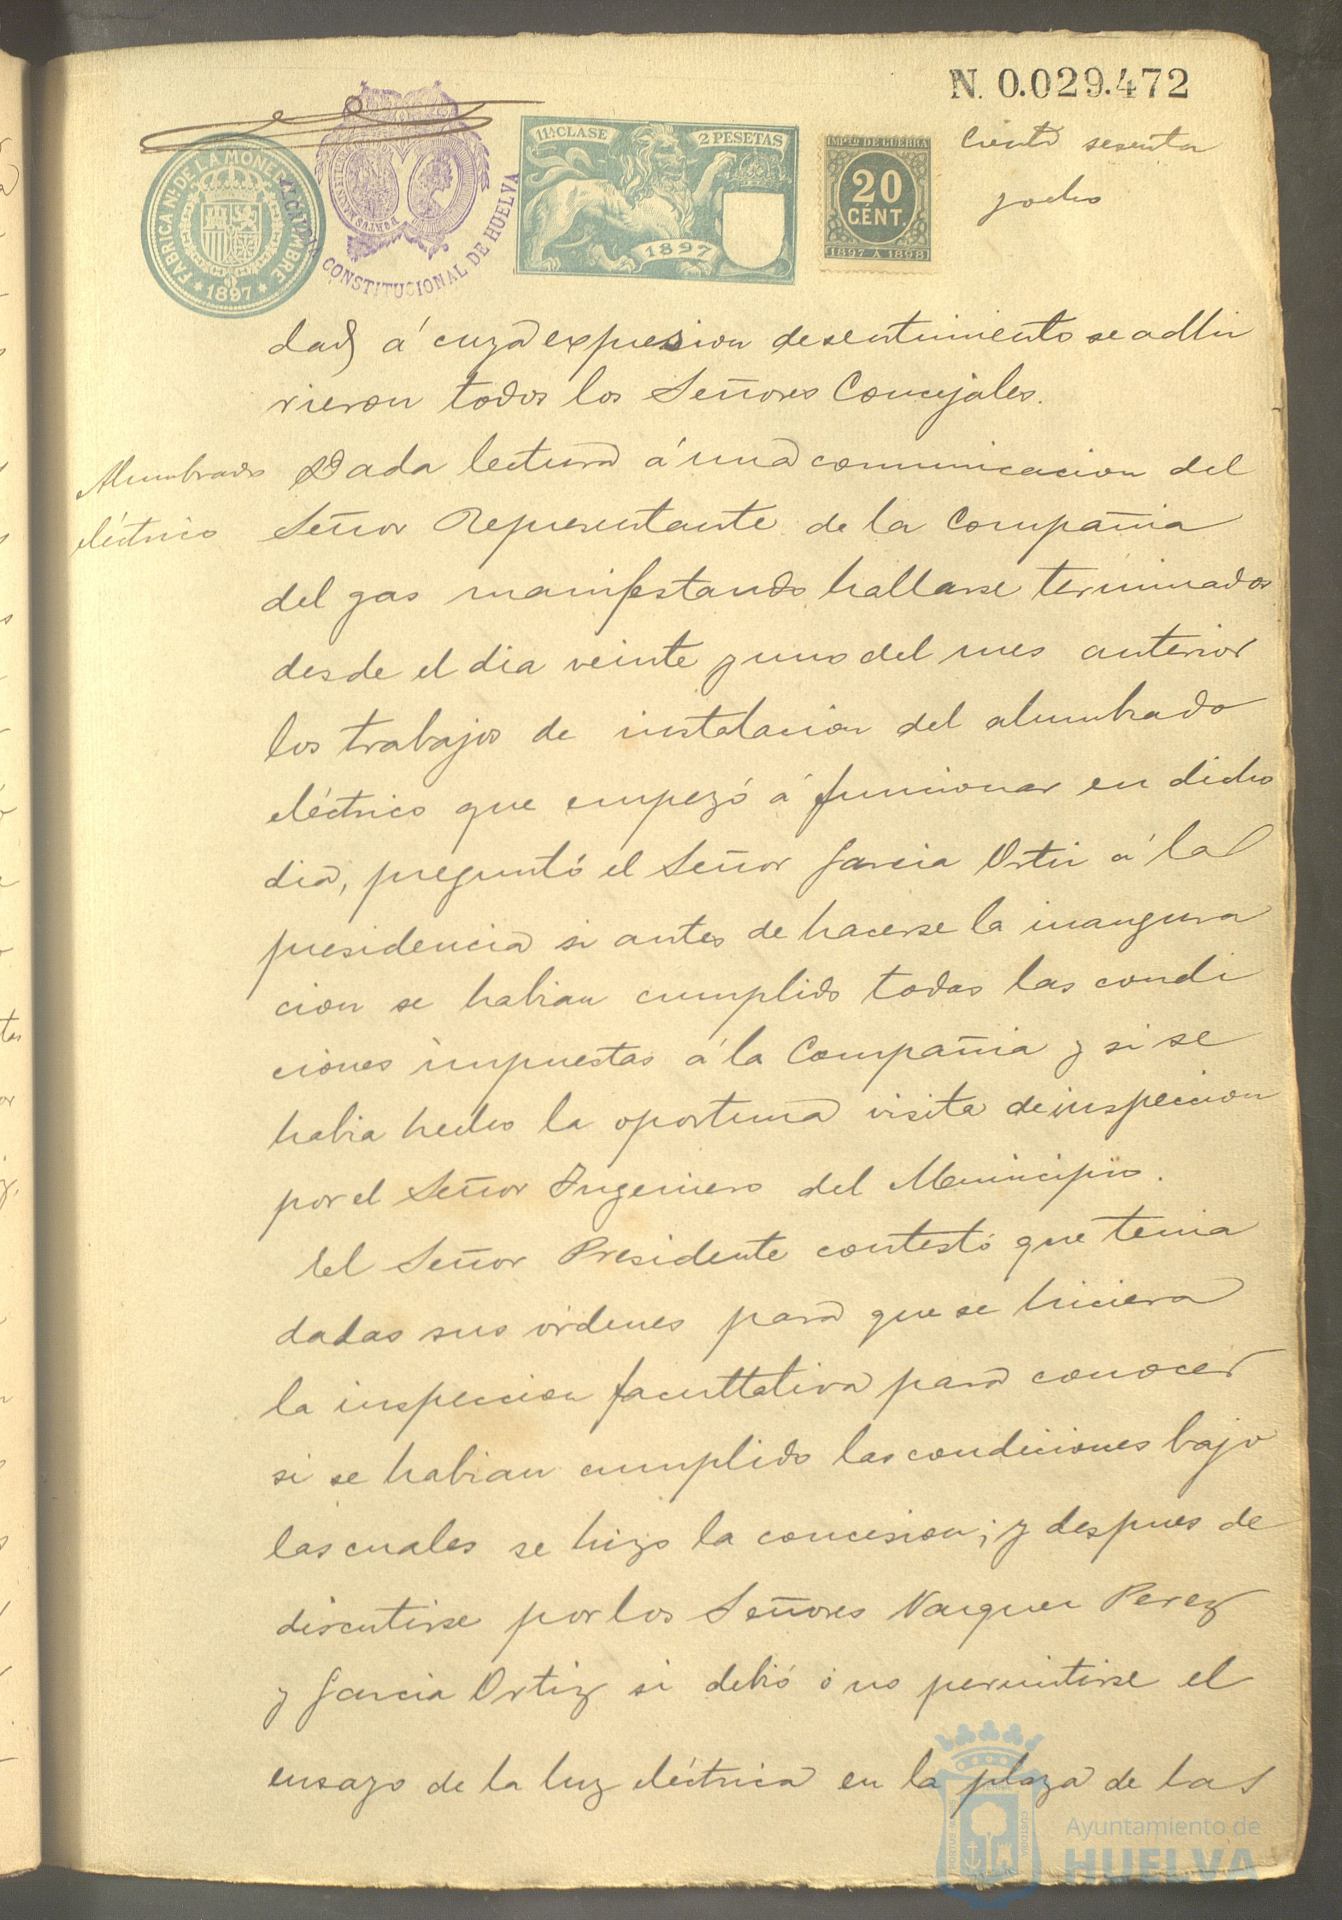 N. 0.029.472
Ciento sesenta
y ocho
FABRICA NL. DE LA MONEDA Y TIMBRE
* 1897 *
ALCALDIA CONSTITUCIONAL DE HUELVA
11ª CLASE 2 PESETAS
1897
IMPTO. DE GUERRA
20
CÉNT.
1897 A 1898
dad, á cuya expresion de sentimiento se adhi
rieron todos los Señores Concejales.
Alumbrado
eléctrico
Dada lectura á una comunicacion del
Señor Representante de la Compañia
del gas manifestando hallarse terminados
desde el dia veinte y uno del mes anterior
los trabajos de instalacion del alumbrado
eléctrico que empezó á funcionar en dicho
dia, preguntó el Señor Garcia Ortiz á la
presidencia si antes de hacerse la inaugura
cion se habian cumplido todas las condi
ciones impuestas á la Compañia y si se
habia hecho la oportuna visita de inspeccion
por el Señor Ingeniero del Municipio.
El Señor Presidente contestó que tenia
dadas sus órdenes para que se hiciera
la inspeccion facultativa para conocer
si se habian cumplido las condiciones bajo
las cuales se hizo la concesion; y despues de
discutirse por los Señores Vazquez Perez
y Garcia Ortiz si debió ó no permitirse el
ensayo de la luz eléctrica en la plaza de las
Ayuntamiento de
HUELVA